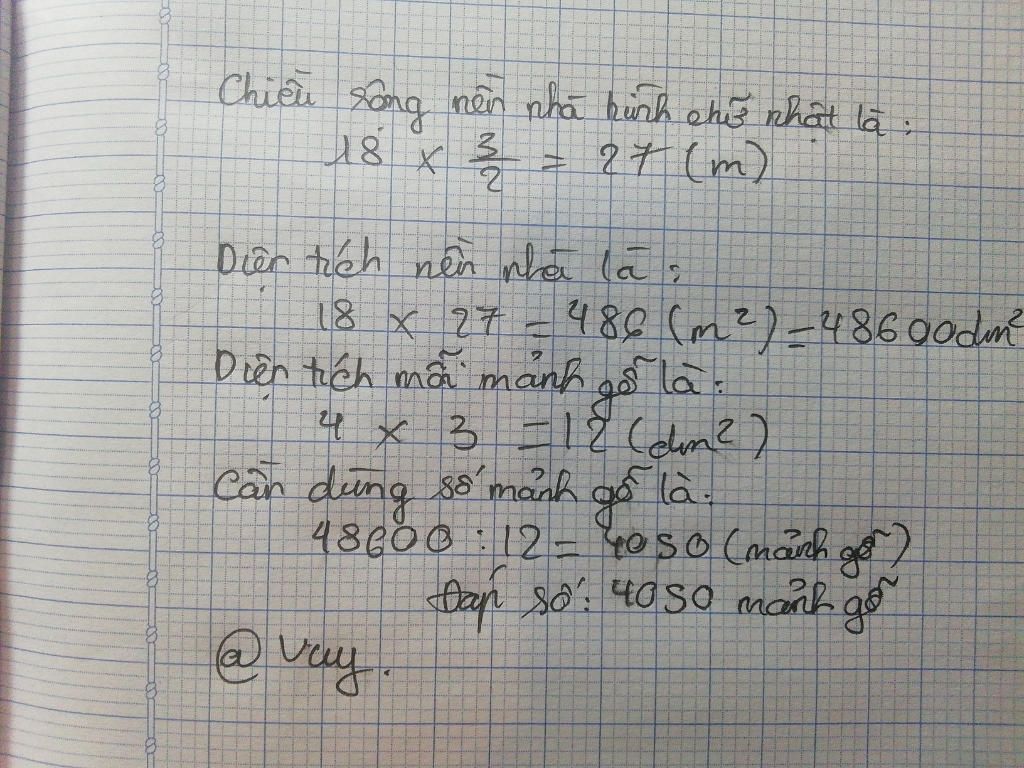 Chiều rộng nền nhà hình chữ nhật là:
18 × 3/2 = 27 (m)
Diện tích nền nhà là:
18 × 27 = 486 (m²) = 48600dm²
Diện tích mỗi mảnh gỗ là:
4 × 3 = 12 (dm²)
Cần dùng số mảnh gỗ là:
48600 : 12 = 4050 (mảnh gỗ)
Đáp số: 4050 mảnh gỗ
@ Vuy.